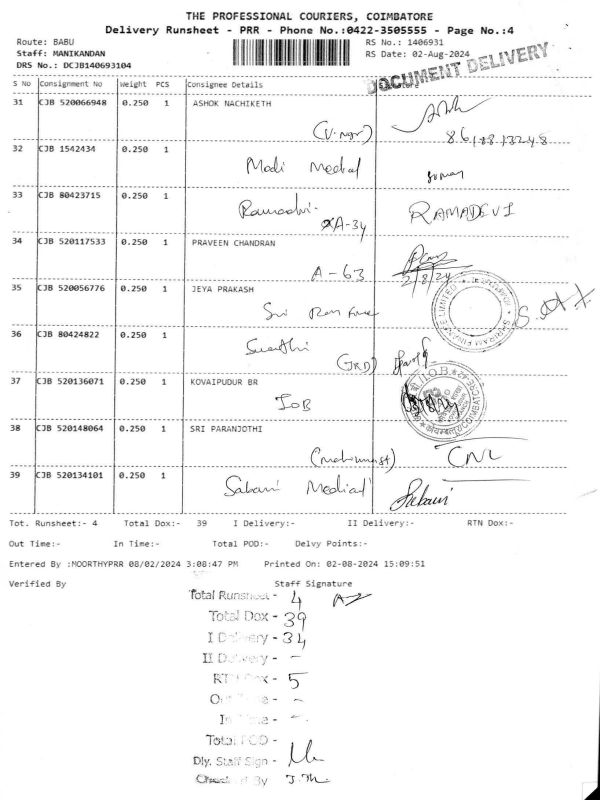 THE PROFESSIONAL COURIERS, COIMBATORE
Delivery Runsheet - PRR - Phone No.:0422-3505555 - Page No.:4
Route: BABU
RS No.: 1406931
Staff: MANIKANDAN
RS Date: 02-Aug-2024
DRS No.: DCJB140693104
DOCUMENT DELIVERY
S No Consignment No Weight PCS Consignee Details
31 CJB 520066948 0.250 1 ASHOK NACHIKETH
(V.Ngr)
32 CJB 1542434 0.250 1
Modi Medical
33 CJB 80423715 0.250 1
A-34 RAMADEVI
34 CJB 520117533 0.250 1 PRAVEEN CHANDRAN
A-63 2/8/24
35 CJB 520056776 0.250 1 JEYA PRAKASH
Sri Ram
SHRIRAM FINANCE LIMITED
36 CJB 80424822 0.250 1
Swathi
37 CJB 520136071 0.250 1 KOVAIPUDUR BR
IOB
I.O.B.
COIMBATORE
38 CJB 520148064 0.250 1 SRI PARANJOTHI
39 CJB 520134101 0.250 1
Sabari Medical Sabari
Tot. Runsheet:- 4 Total Dox:- 39 I Delivery:- II Delivery:- RTN Dox:-
Out Time:- In Time:- Total POD:- Delvy Points:-
Entered By :MOORTHYPRR 08/02/2024 3:08:47 PM Printed On: 02-08-2024 15:09:51
Verified By Staff Signature
Total Runsheet - 4
Total Dox - 39
I Delivery - 34
II Delivery - -
RTN Dox - 5
Out Time - -
In Time - -
Total POD -
Dly. Staff Sign -
Checked By